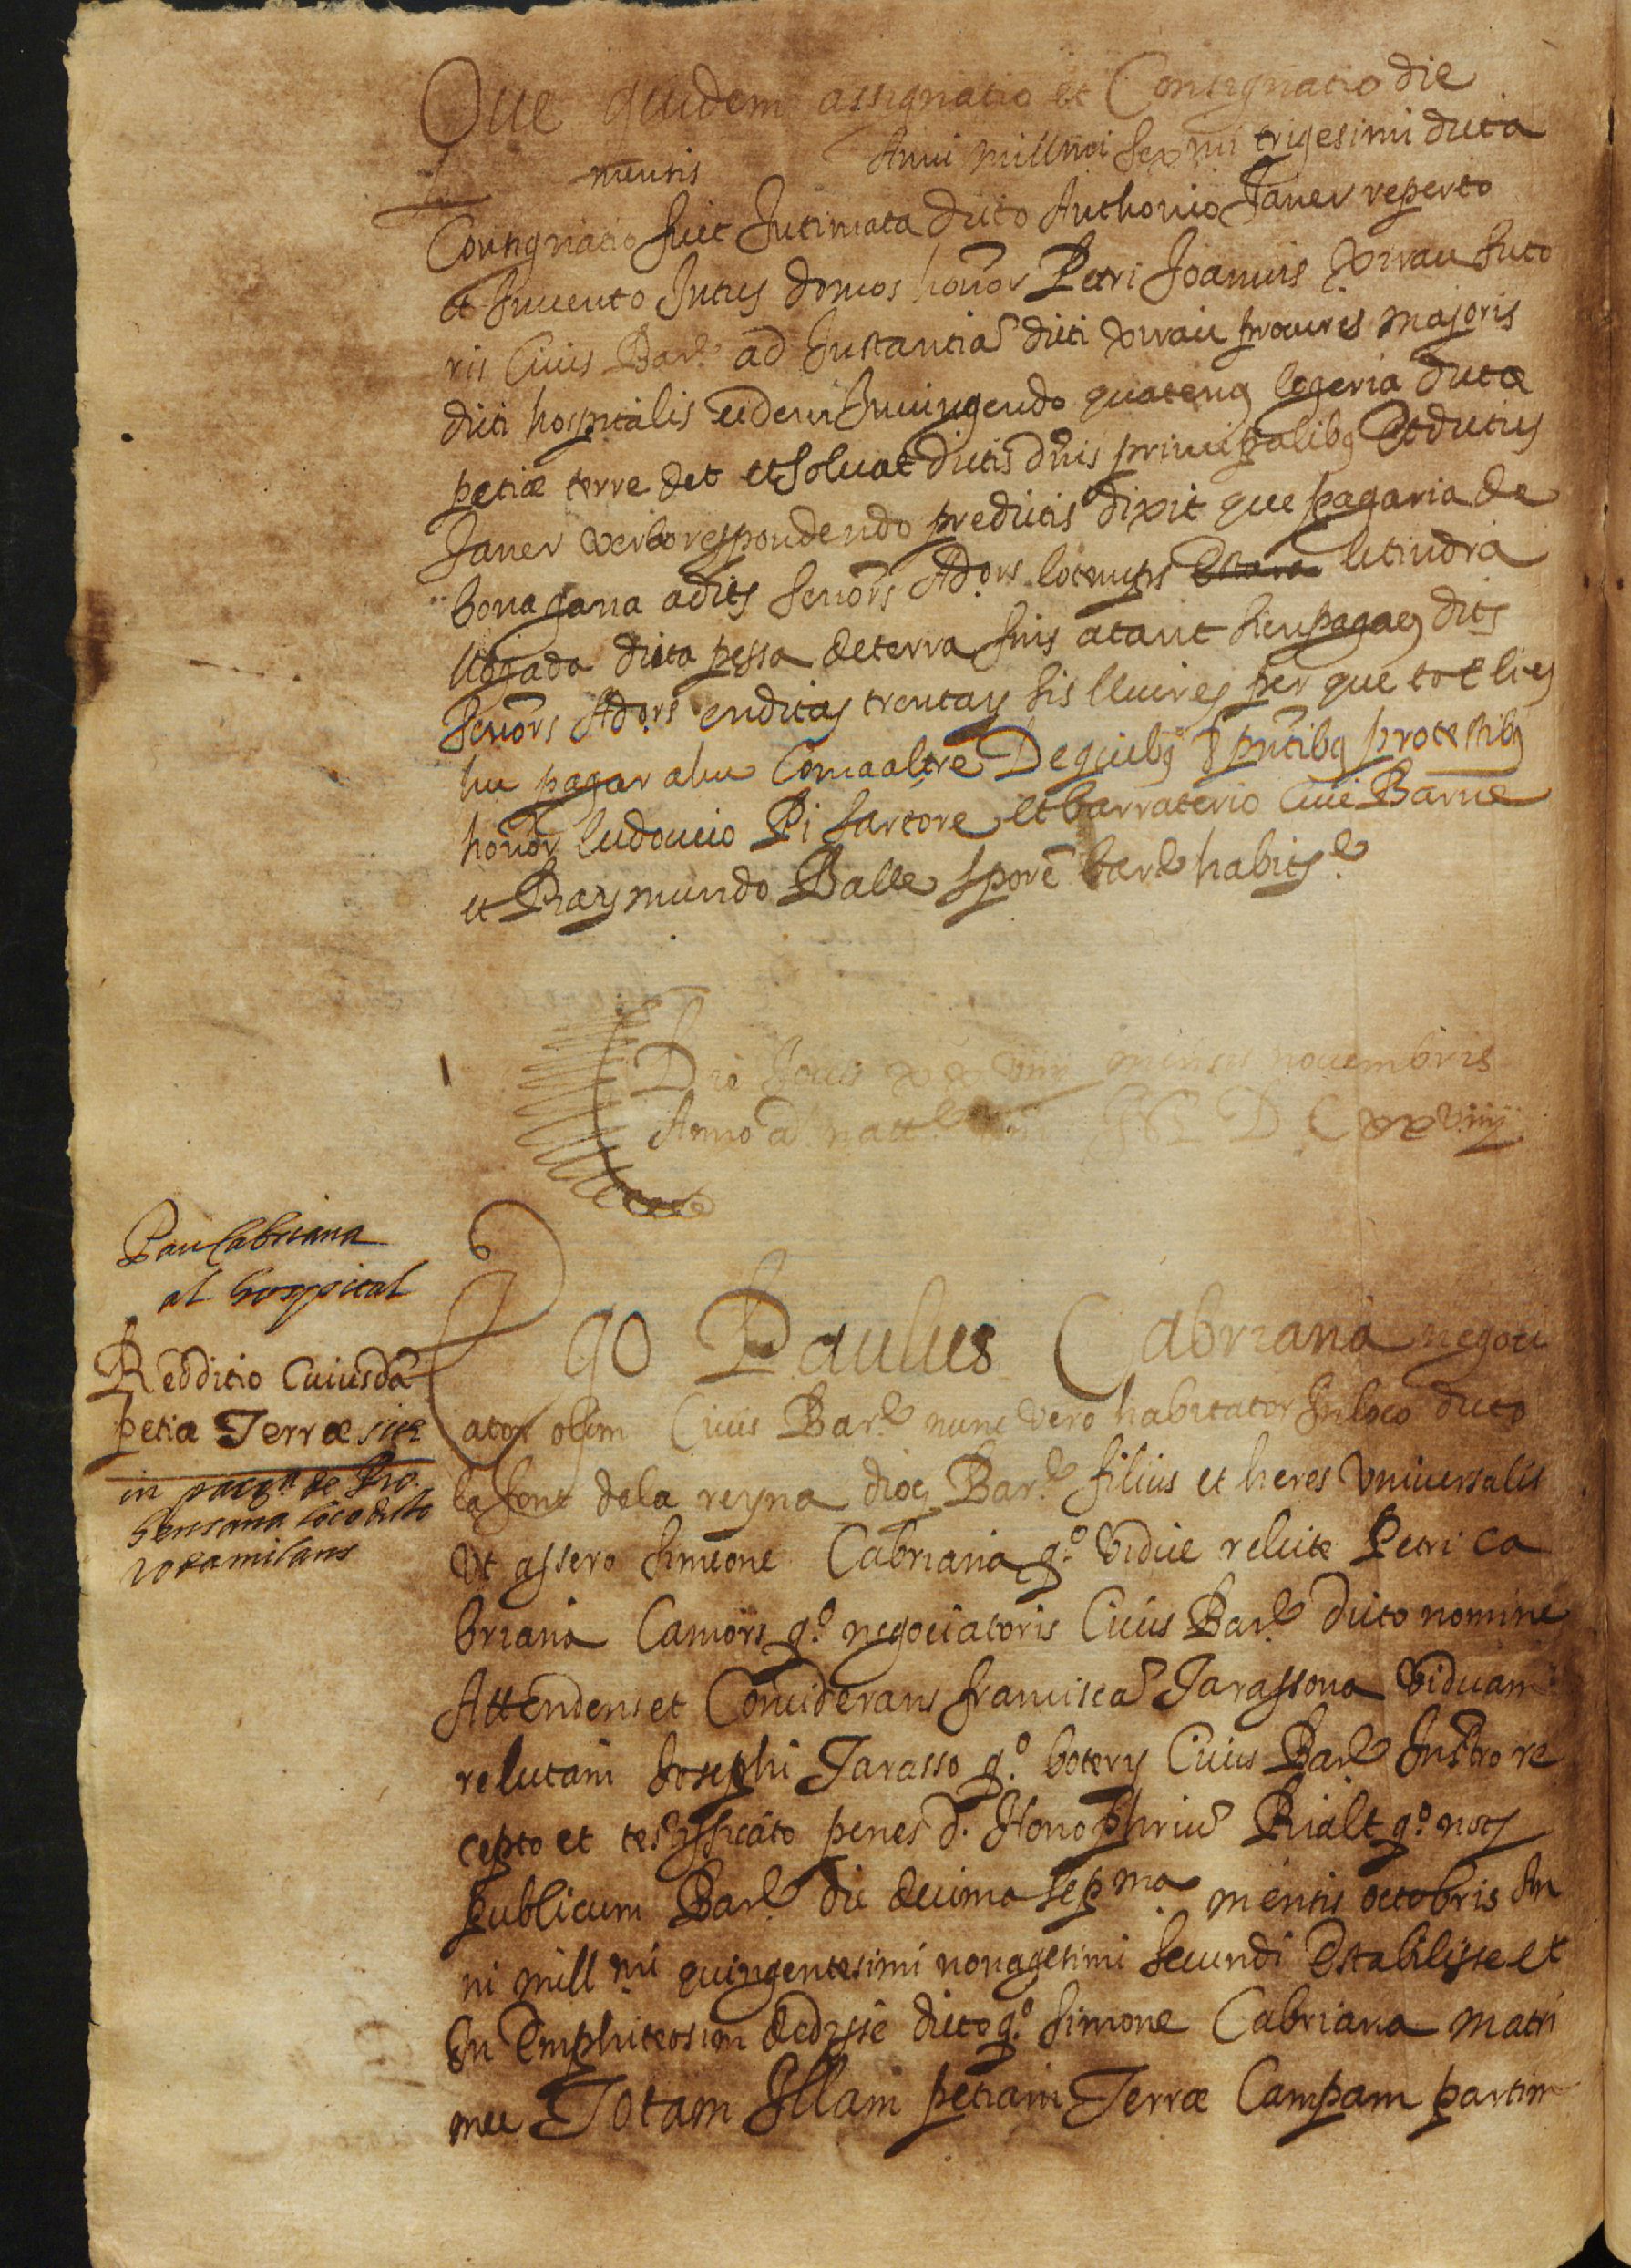 Que quidem assignatio et Consignatio die
mensis Anni millmi sexmi trigesimi dicta
Consignatio fuit Intimata dicto Anthonio Janer reperto
et Invento Intus domos honor Petri Joannis Xirau suto
ris Civis Bar. ad Instantia dicti Xirau procuris majoris
dicti hospitalis eidem Iniungendo quatenus logeria dictæ
petiæ terre det et soluat dictis dnis principalibq Et dictus
Janer verbo respondendo predictis dixit que pagaria de
bona gana a dits senors Ados lo temps letindra
llogada dicta pessa de terra fins atant sien pagats dits
senors Adors en ditas trentay sis lliures per que tot li es
hu pagar a hu Com a altre De quibq pntibq protestibq
honor Ludovico Pi sartore et barraterio Cive Barne
et Raymundo Balle sporē Bar habits.
Die Jovis xxviiij mensis novembris
Anno a natt. M D Cxxviiij
Pau Cabriana
al hospital
Redditio Cuiusda
petiæ Terræ sitæ
in parqa de Sto.
Gensana loco dicto
rocamilans
Ego Paulus Cabriana negoci
ator olim Civis Bar. nunc vero habitator In loco dicto
la font de la reyna dioc Bar. filius et heres Universalis
Ut assero Simeone Cabriana q.o vidue relicte Petri Ca
briana Camors q.o negociatoris Civis Bar. dicto nomine
Attendens et Considerans francisca Tarassona viduam
relictam Josephi Tarasso q.o boterii Civis Bar. Instro re
cepto et testifficato penes d. Honophriu Rialt q.o nots
publicum Bar. die decima sepma mensis octobris An
ni mill mi quingentesimi nonagesimi secundi Stabilisse et
In Emphiteosim dedisse dicto q.o Simone Cabriana matri
mee Totam Illam petiam Terræ Campam partim